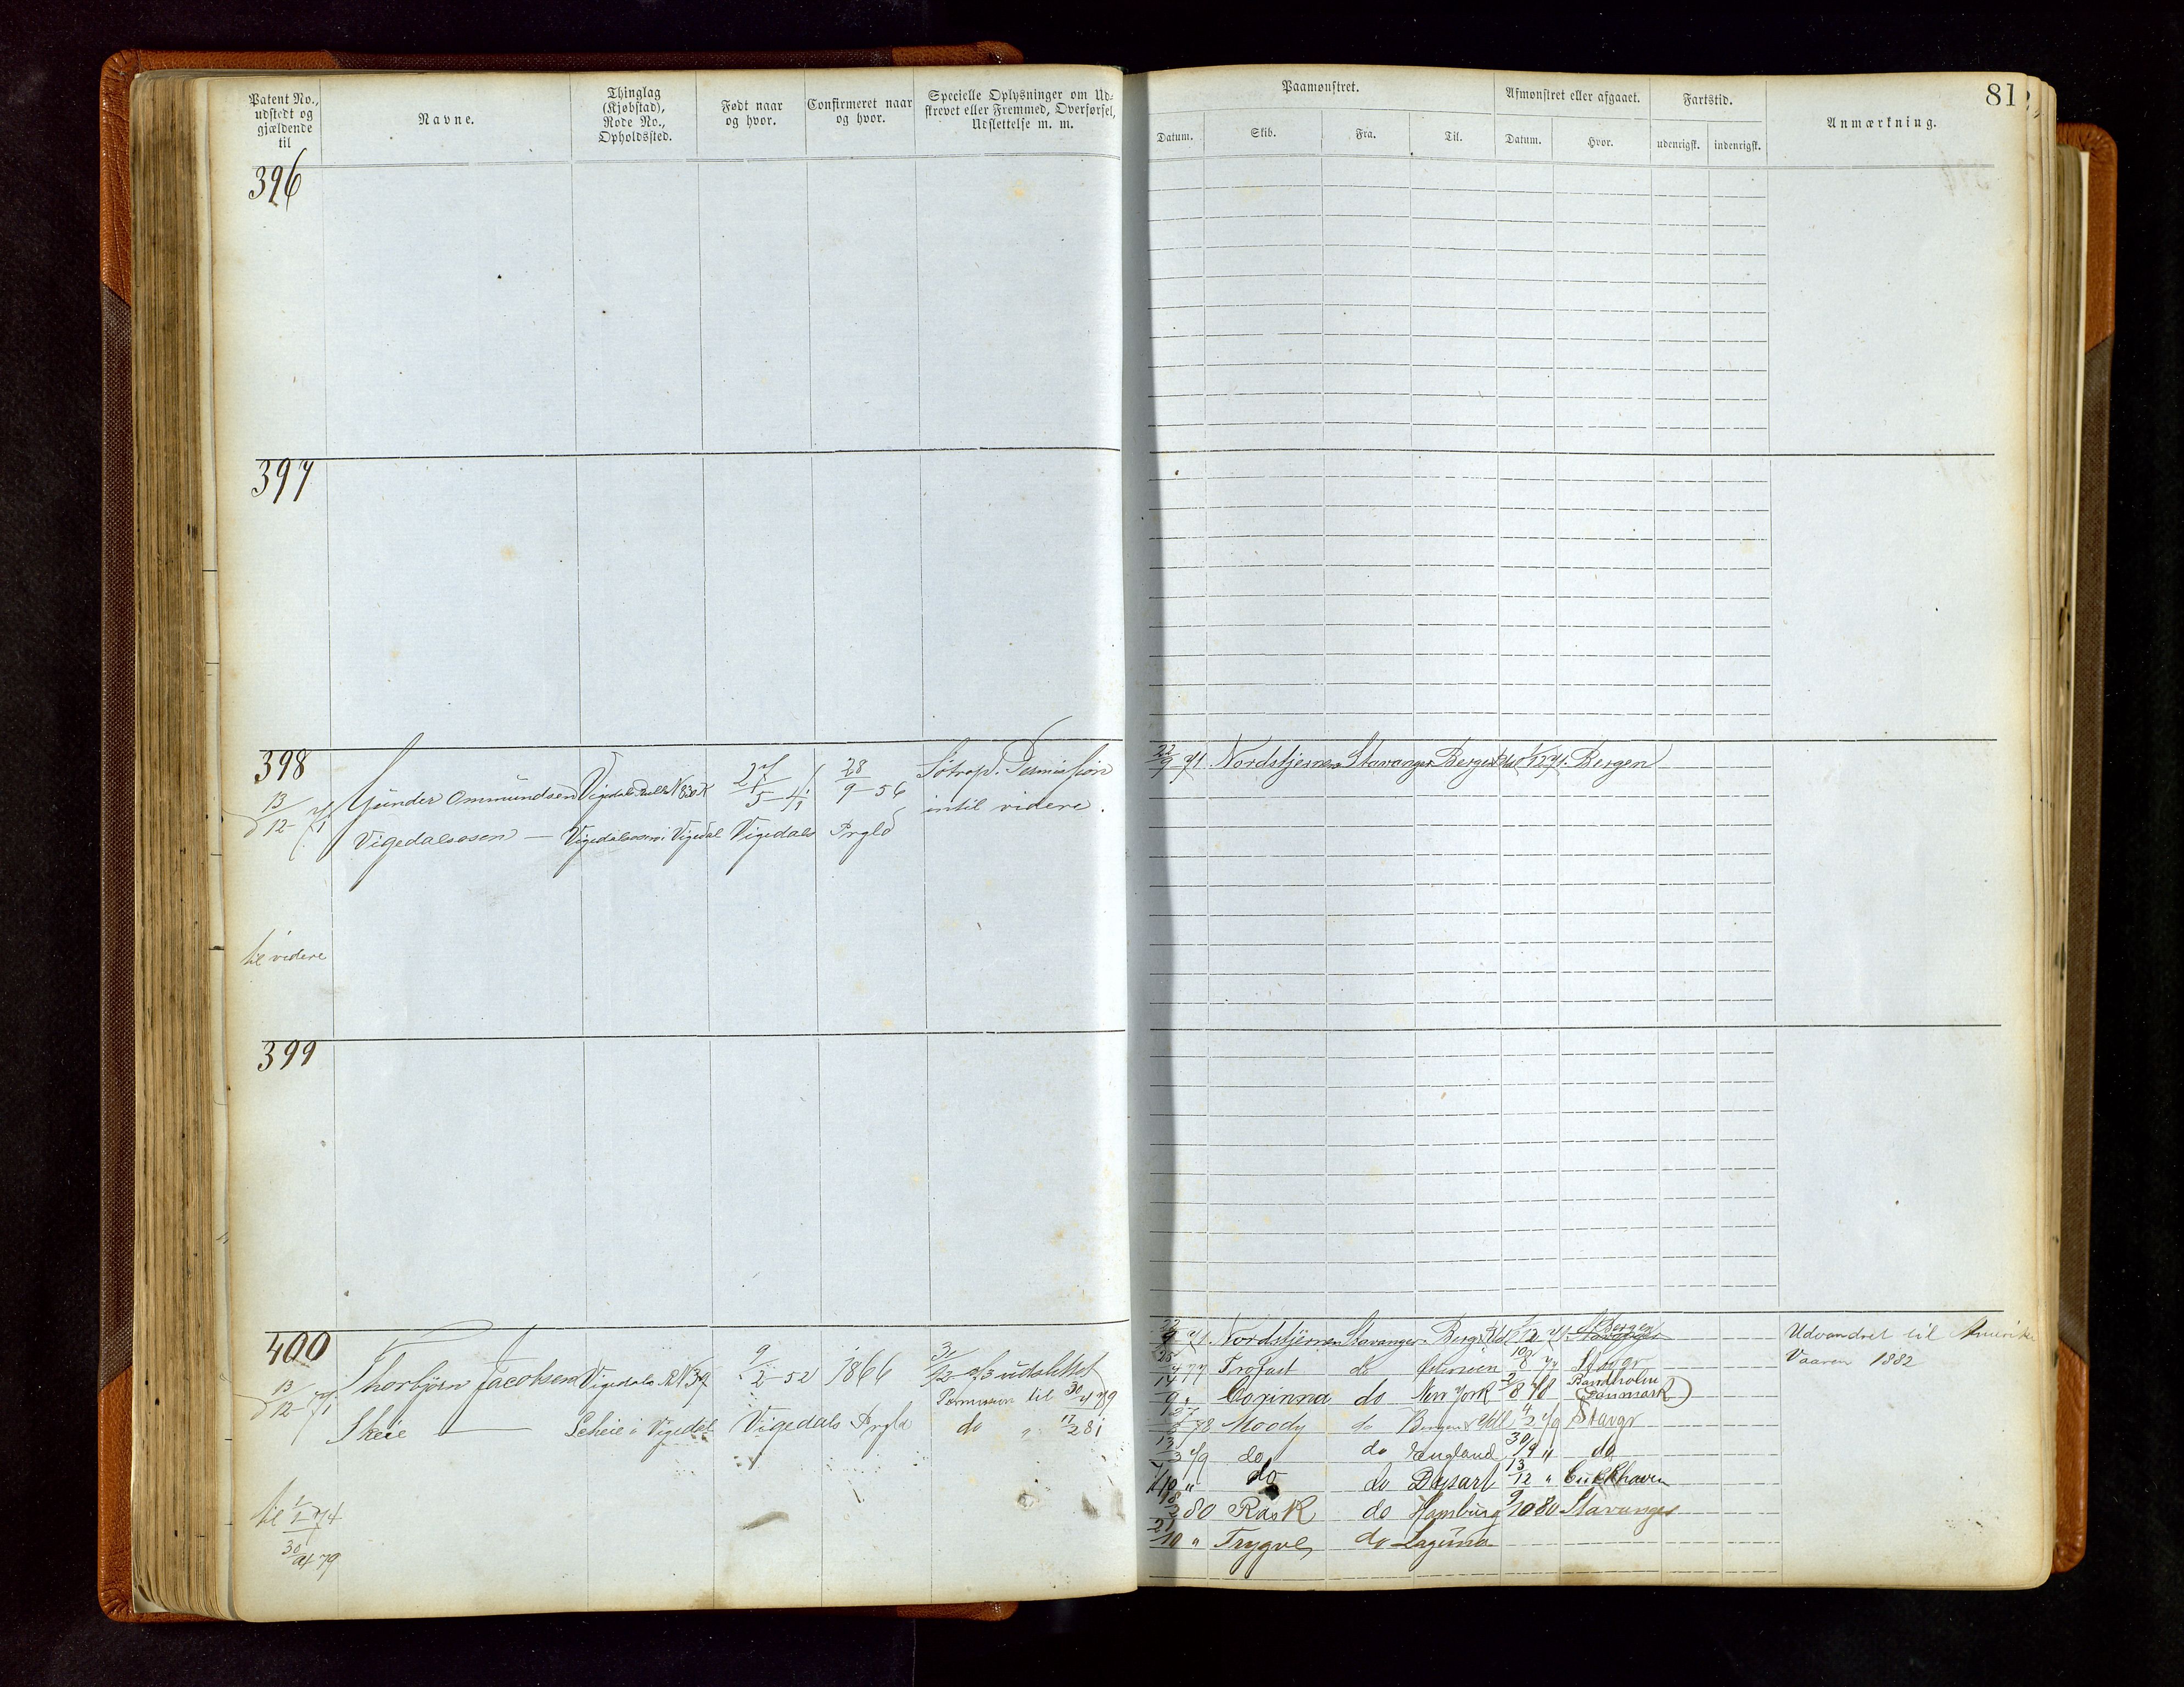 Patent No.,
udstedt og
gjældende
til
Navne.
Thinglag
(Kjøbstad),
Rode No.,
Opholdssted.
Født naar
og hvor.
Confirmeret naar
og hvor.
Specielle Oplysninger om Ud-
skrevet eller Fremmed, Overførsel,
Udslettelse m. m.
Paamønstret.
Datum.
Skib.
Fra.
Til.
Afmønstret eller afgaaet.
Datum.
Hvor.
Fartstid.
udenrigsk.
indenrigsk.
Anmærkning.
81
396
397
398
13/12-71
Gunder Ommundsen
Vigedalsosen —
Vigedalsosen i Vigedal
27/5-41
Vigedals
28/9-56
Prgld
Permission
intil videre.
22/9 71 Nordstjernen Stavanger Bergen Bergen
til videre
399
400
13/12-71
Thorbjørn Jacobsen
Skeie —
Vigedals R N 37
Scheie i Vigedal
9/2-52
Vigedals
1866
Prgld
udslettet
Permission til 30/4 79
do " 17/2 81
til 1/1-74
30/4 79
Nordstjernen Stavanger Bergen
25/4 77 Trofast do Stavgr
Corinna do New York 2/8 78 Bandholm
(Danmark)
78 Moody do Bergen 4/2 79 Stavgr
13/3 79 do do England 30/9 " do
7/10 " do do Dysart 13/12 " Cuxhaven
18/2 80 Rask do Hamburg 9/10 80 Stavanger
21/10 " Trygve do Laguna
Udvandret til Amerika
Vaaren 1882